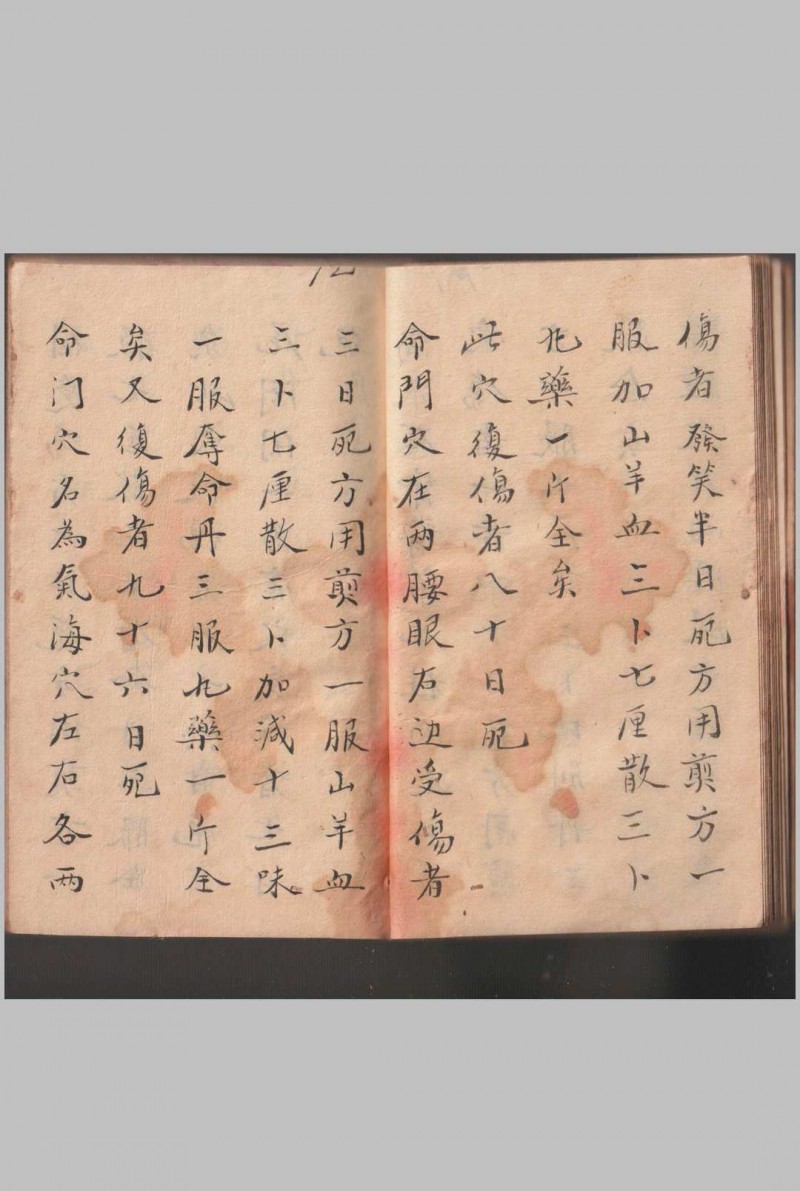 傷者發笑半日死方用剪方一
服加山羊血三卜七厘散三卜
九藥一斤全矣
此穴復傷者八十日死
命門穴在两腰眼右边受傷者
三日死方用剪方一服山羊血
三卜七厘散三卜加减十三味
一服奪命丹三服九藥一斤全
矣又復傷者九十六日死
命门穴名為氣海穴左右各两